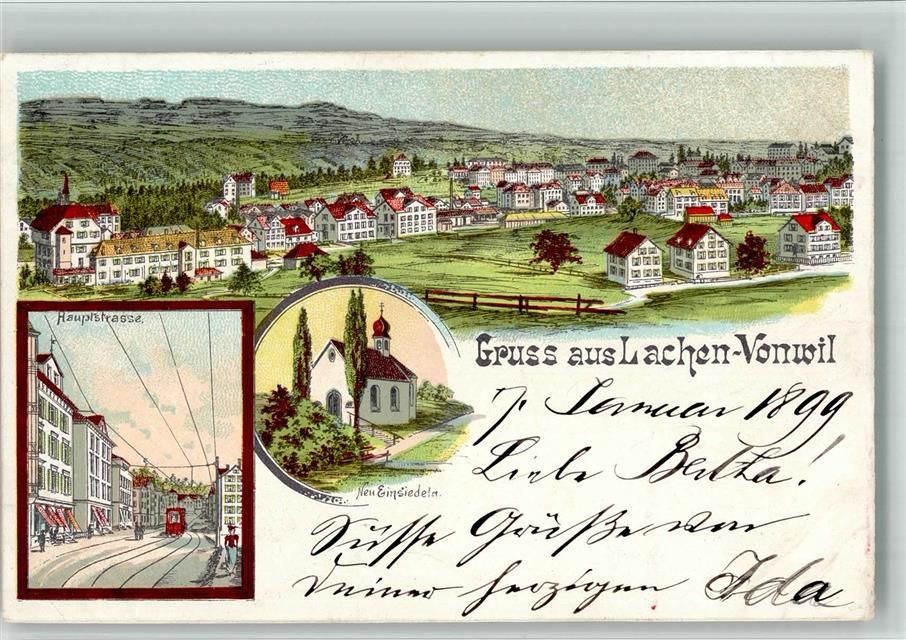 Hauptstrasse.
Gruss aus Lachen-Vonwil
Neu Einsiedeln.
7. Januar 1899
Liebe Bertha!
Süsse Grüße von
Deiner herzigen Ida